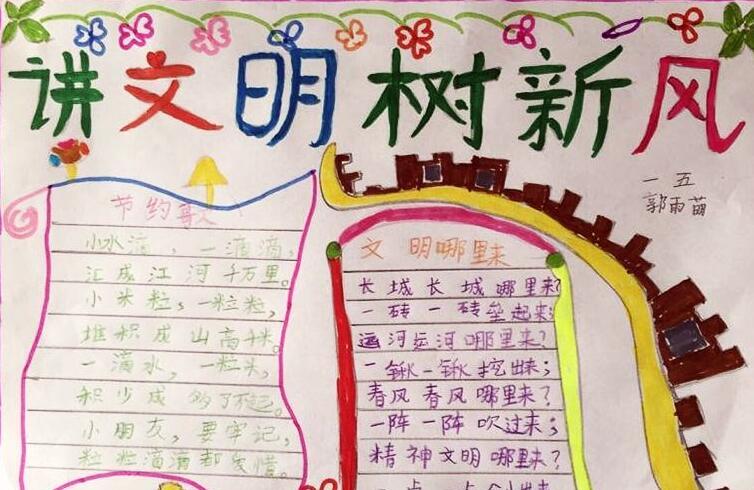 讲文明树新风
一五
郭雨苗
节约歌
小水滴，一滴滴，
汇成江河千万里。
小米粒，一粒粒，
堆积成山高千米。
一滴水，一粒米，
积少成多了不起。
小朋友，要牢记，
粒粒滴滴都爱惜。
文明哪里来
长城长城哪里来？
一砖一砖垒起来；
运河运河哪里来？
一锹一锹挖出来；
春风春风哪里来？
一阵一阵吹过来；
精神文明哪里来？
一点一点